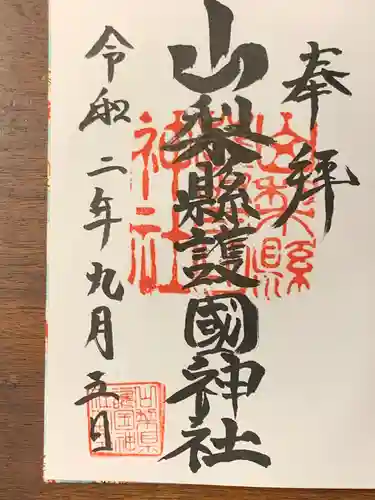 奉拝
山梨縣護國神社
令和二年九月五日
山梨縣護國神社
山梨県護国神社